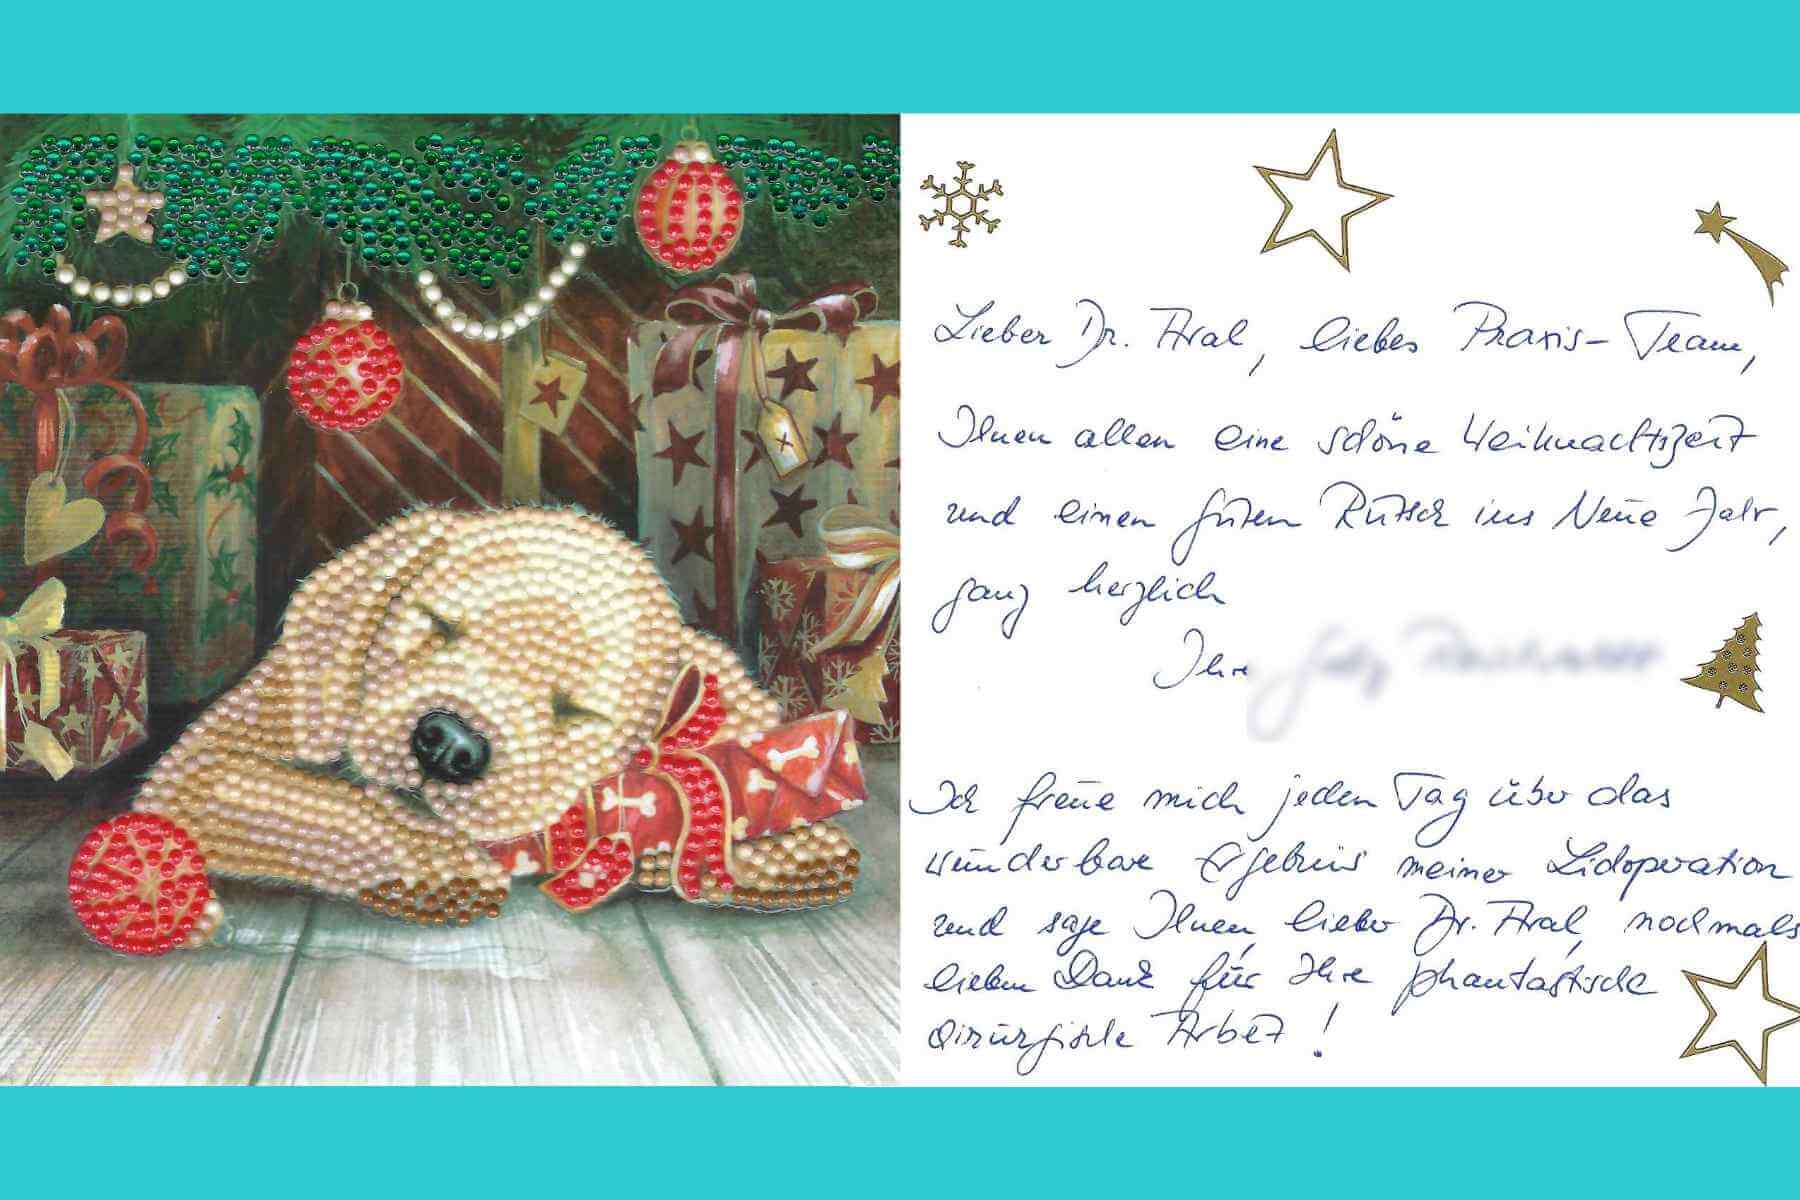 Lieber Dr. Aral, liebes Praxis-Team,
Ihnen allen eine schöne Weihnachtszeit
und einen guten Rutsch ins Neue Jahr,
ganz herzlich
Ihre
Ich freue mich jeden Tag über das
wunderbare Ergebnis meiner Lidoperation
und sage Ihnen, lieber Dr. Aral, nochmals
lieben Dank für Ihre phantastische
chirurgische Arbeit!